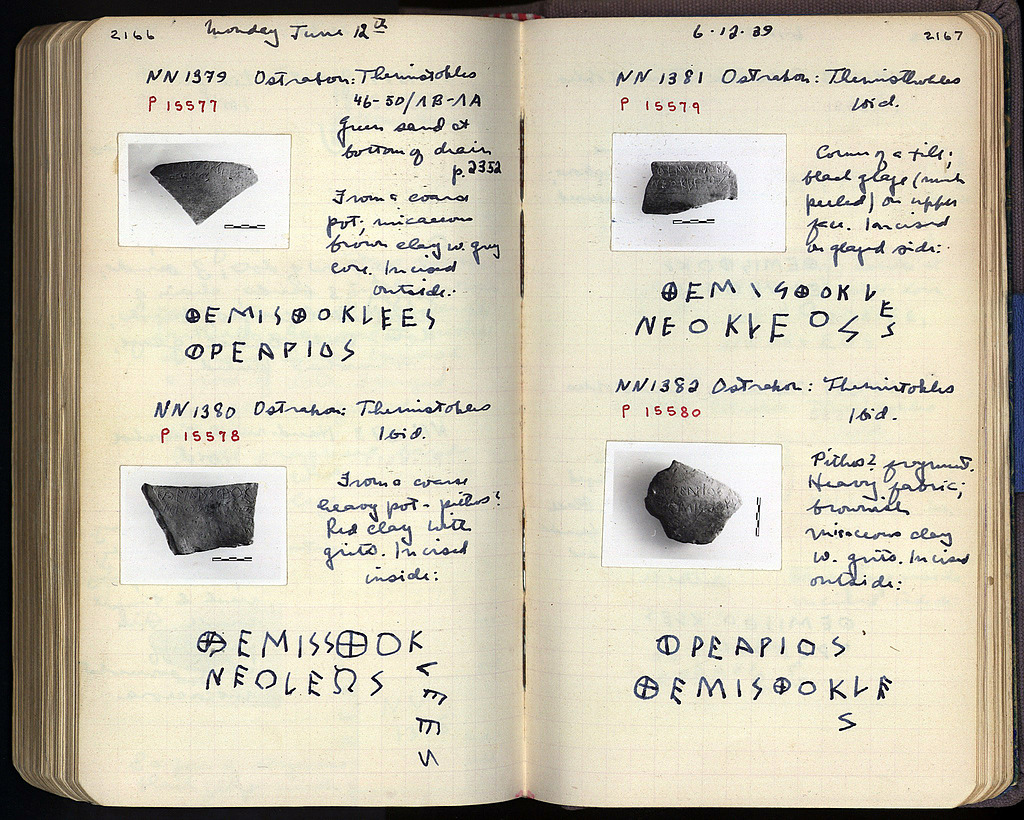 2166 Monday June 12th
NN 1379 Ostrakon: Themistokles
P 15577 46-50/ΛB-ΛA
Green sand at
bottom of drain
p. 2352
From a coarse
pot; micaceous
brown clay w. grey
core. Incised
outside:
ⴲEMISⴲOKLEES
ΦPEAPIOS
NN 1380 Ostrakon: Themistokles
P 15578 Ibid.
From a coarse
heavy pot - pithos?
Red clay with
grits. Incised
inside:
ⴲEMISSⴲOK
LEES
NEOLEOS
6-12-39 2167
NN 1381 Ostrakon: Themisthokles
P 15579 Ibid.
Corner of a tile;
black glaze (much
peeled) on upper
face. Incised
on glazed side:
ⴲEMISⴲOKLES
NEOKLEOS
NN 1382 Ostrakon: Themistokles
P 15580 Ibid.
Pithos? fragment.
Heavy fabric;
brownish
micaceous clay
w. grits. Incised
outside:
ΦPEAPIOS
ⴲEMISⴲOKLE
S